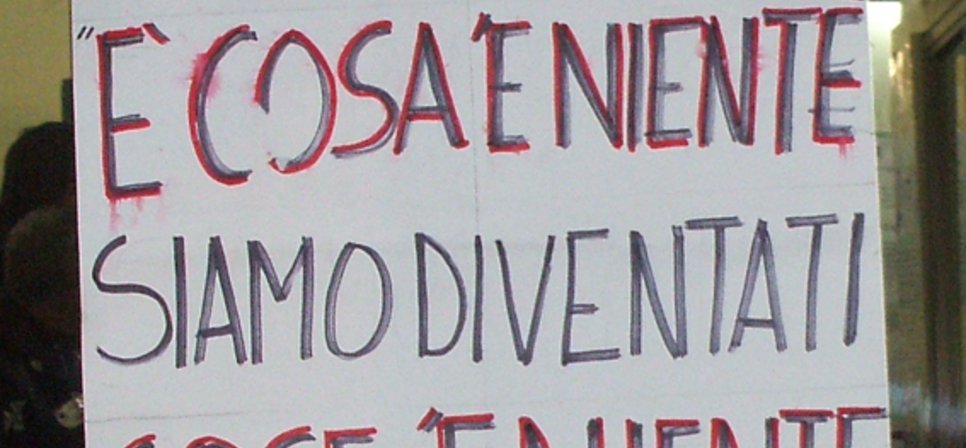 "E' COSA 'E NIENTE
SIAMO DIVENTATI
COSE 'E NIENTE